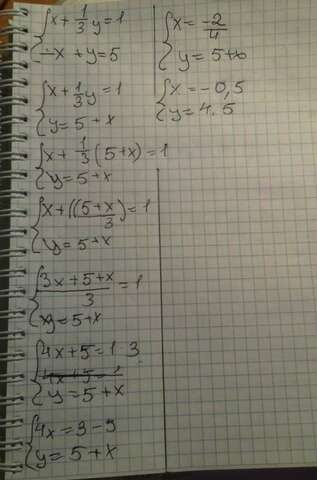 x + 1/3 y = 1
-x + y = 5
x + 1/3 y = 1
y = 5 + x
x + 1/3 (5+x) = 1
y = 5 + x
x + ((5+x)/3) = 1
y = 5 + x
(3x+5+x)/3 = 1
y = 5 + x
4x + 5 = 1 · 3
4x + 5 = 1
y = 5 + x
4x = 3 - 5
y = 5 + x
x = -2/4
y = 5 + x
x = -0,5
y = 4.5